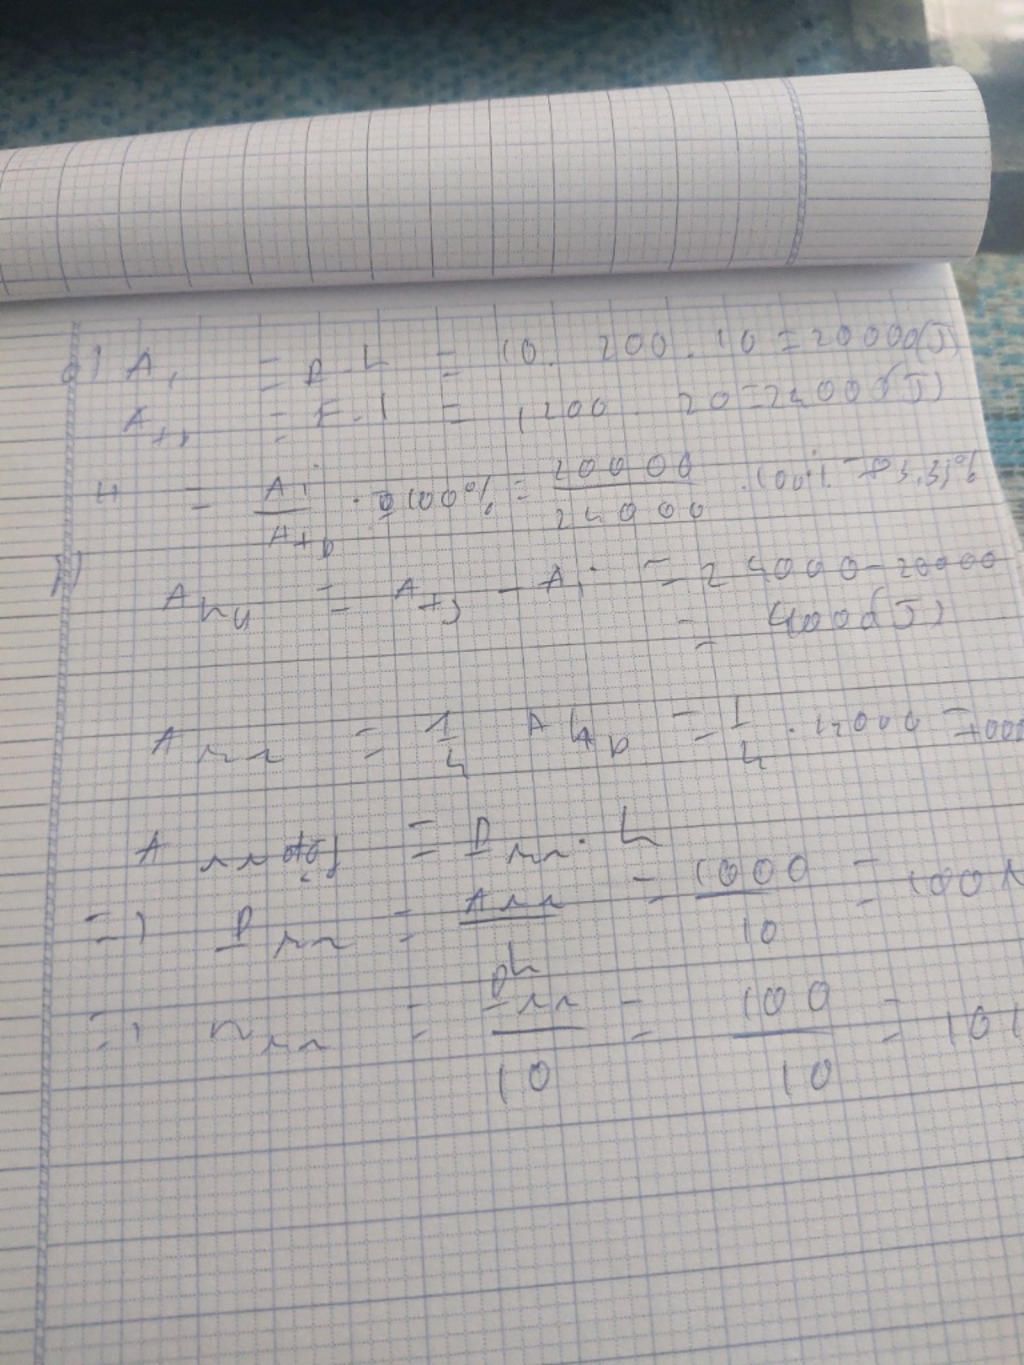 a) Ai = P.h = 10. 200. 10 = 20000(J)
Atp = F.l = 1200. 20 = 24000(J)
H = Ai / Atp . 100% = 20000 / 24000 . 100% = 83,3%
b)
Ahp = Atp - Ai = 24000 - 20000
= 4000(J)
Arr = 1/4 Ahp = 1/4 . 4000 = 1000
A rr động = Prr . h
=) Prr = Arr / h = 1000 / 10 = 100N
=) mrr = Prr / 10 = 100 / 10 = 10